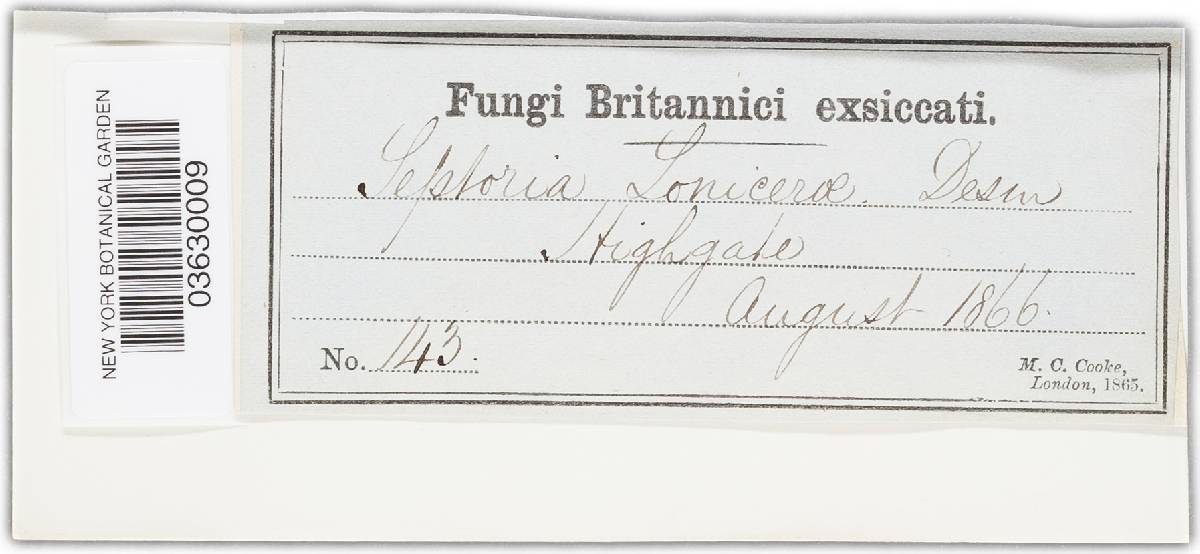 NEW YORK BOTANICAL GARDEN
03630009
Fungi Britannici exsiccati.
Septoria Loniceræ. Desm
Highgate
August 1866.
No. 143.
M. C. Cooke,
London, 1865.